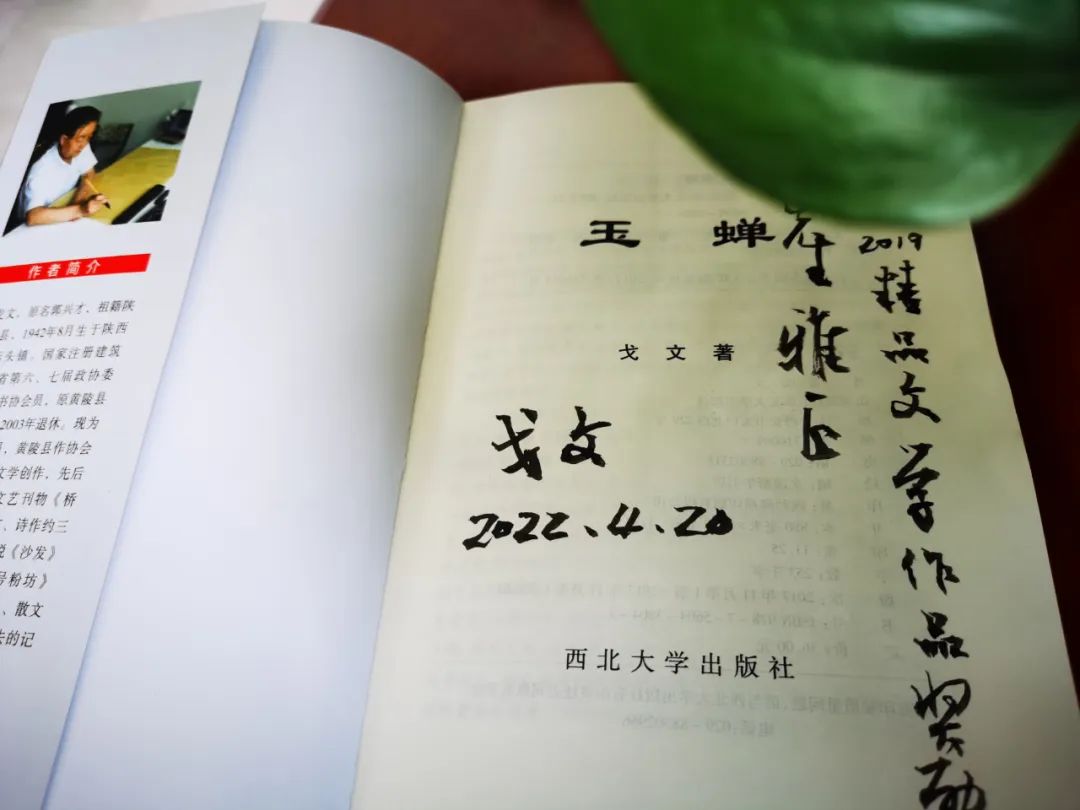 作者简介
文,原名郭兴才,祖籍陕
县,1942年8月生于陕西
头镇。国家注册建筑
省第六、七届政协委
书协会员,原黄陵县
2003年退休。现为
,黄陵县作协会
文学创作,先后
文艺刊物《桥
、诗作约三
说《沙发》
号粉坊》
、散文
去的记
玉 蝉
戈 文 著
先生雅正
戈文
2022.4.20
2019
精品文学作品奖励
西北大学出版社